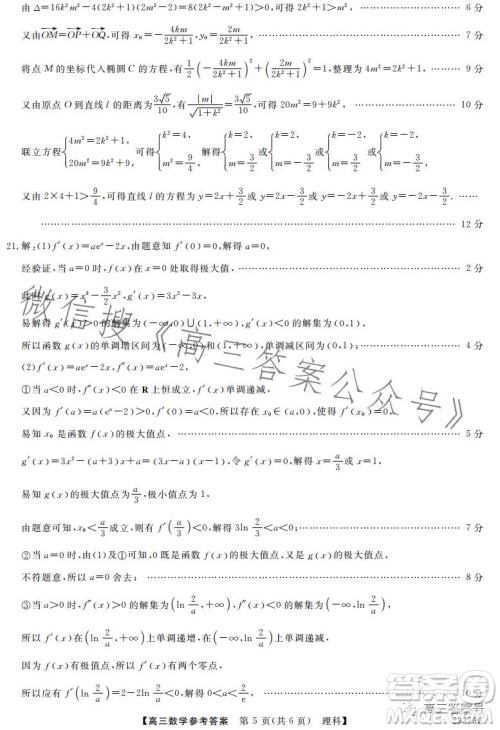 由 Δ=16k²m²-4(2k²+1)(2m²-2)=8(2k²-m²+1)>0,可得 m²<2k²+1. …… 6 分
又由 OM=OP+OQ,可得 x₀=-4km/(2k²+1),y₀=2m/(2k²+1). …… 7 分
将点 M 的坐标代入椭圆 C 的方程,有 1/2(-4km/(2k²+1))²+(2m/(2k²+1))²=1,整理为 4m²=2k²+1, …… 9 分
又由原点 O 到直线 l 的距离为 3√5/10,有 |m|/√(1+k²)=3√5/10,可得 20m²=9+9k².
联立方程{4m²=2k²+1, 20m²=9+9k²,可得{k²=4, m²=9/4,解得{k=2, m=3/2 或{k=2, m=-3/2 或{k=-2, m=3/2 或{k=-2, m=-3/2,
又由 2×4+1>9/4,可得直线 l 的方程为 y=2x+3/2 或 y=2x-3/2 或 y=-2x+3/2 或 y=-2x-3/2. ……
…… 12 分
21.解:(1)f′(x)=aeˣ-2x,由题意知 f′(0)=0,解得 a=0,
经验证,当 a=0 时,f(x)在 x=0 处取得极大值, …… 2 分
此时 g(x)=x³-3/2x²,f′(x)=3x²-3x,
易解得 g′(x)>0 的解集为(-∞,0)∪(1,+∞),g′(x)<0 的解集为(0,1),
所以函数 g(x)的单调增区间为(-∞,0),(1,+∞),单调减区间为(0,1); …… 4 分
(2)f′(x)=aeˣ-2x,f″(x)=aeˣ-2,
①当 a<0 时,f″(x)<0 在 R 上恒成立,f′(x)单调递减,
又因为 f′(a)=a(eᵃ-2)>0,f′(0)=a<0,所以存在 x₀∈(a,0),使得 f′(x₀)=0,
易知 x₀ 是函数 f(x)的极大值点, …… 5 分
g′(x)=3x²-(a+3)x+a=(3x-a)(x-1),令 g′(x)=0,解得 x=a/3 或 x=1,
易知 g(x)的极大值点为 a/3,
由题意可知,x₀<a/3 成立,则有 f′(a/3)<0,解得 3ln 2/3<a<0; …… 7 分
②当 a=0 时,由(1)及①可知,0 既是 f(x)的极大值点,又是 g(x)的极大值点,
不符题意,所以 a=0 舍去; …… 8 分
③当 a>0 时,f″(x)>0 的解集为(ln 2/a,+∞),f″(x)<0 的解集为(-∞,ln 2/a),
所以 f′(x)在(ln 2/a,+∞)上单调递增,在(-∞,ln 2/a)上单调递减,
因为 f(x)有极大值点,所以 f′(x)有两个零点,
所以应有 f′(ln 2/a)=2-2ln 2/a<0,解得 0<a<2/e, …… 10 分
【高三数学参考答案 第 5 页(共 6 页) 理科】
微信搜《高三答案公众号》
高三答案号